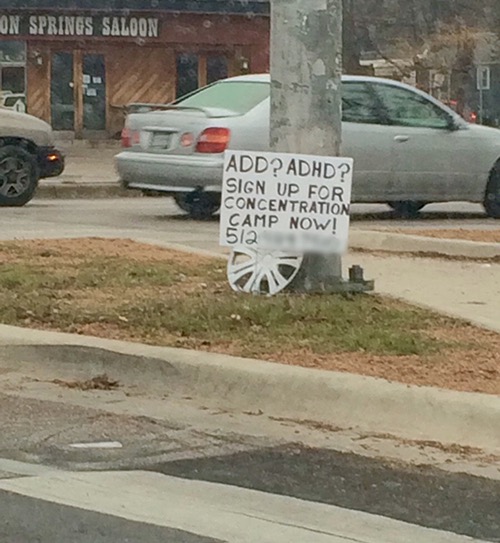 ON SPRINGS SALOON
ADD? ADHD?
SIGN UP FOR
CONCENTRATION
CAMP NOW!
512